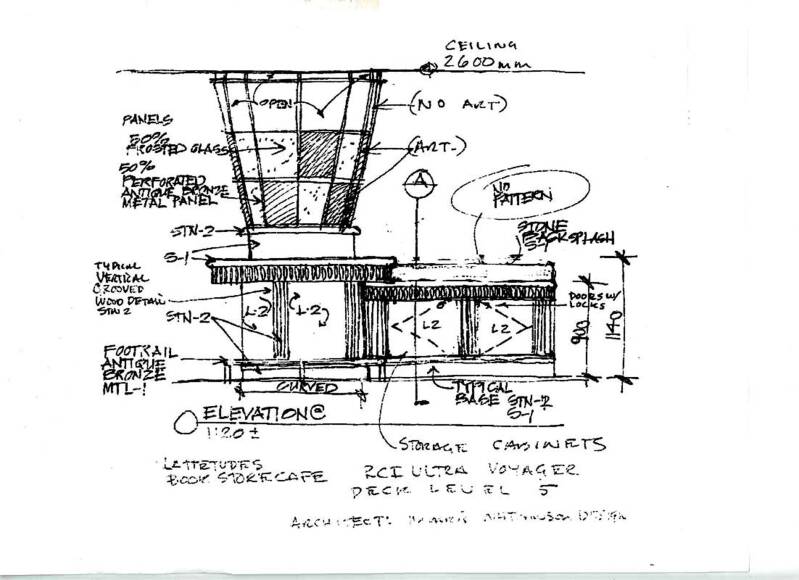 CEILING
2600mm
OPEN
(NO ART)
PANELS
50%
FROSTED GLASS
(ART-)
50%
PERFORATED
ANTIQUE BRONZE
METAL PANEL
A
NO
PATTERN
STN-2
STONE
BACKSPLASH
S-1
TYPICAL
VERTICAL
GROOVED
WOOD DETAIL
STN 2
DOORS W/
LOCKS
L-2
L-2
L2
L2
STN-2
900
1140
FOOTRAIL
ANTIQUE
BRONZE
MTL-1
CURVED
TYPICAL
BASE STN-2
S-1
ELEVATION@
1:20 ±
STORAGE CABINETS
LATTETUDES
BOOK STORE CAFE
RCI ULTRA VOYAGER
DECK LEVEL 5
ARCHITECT: DESIGN